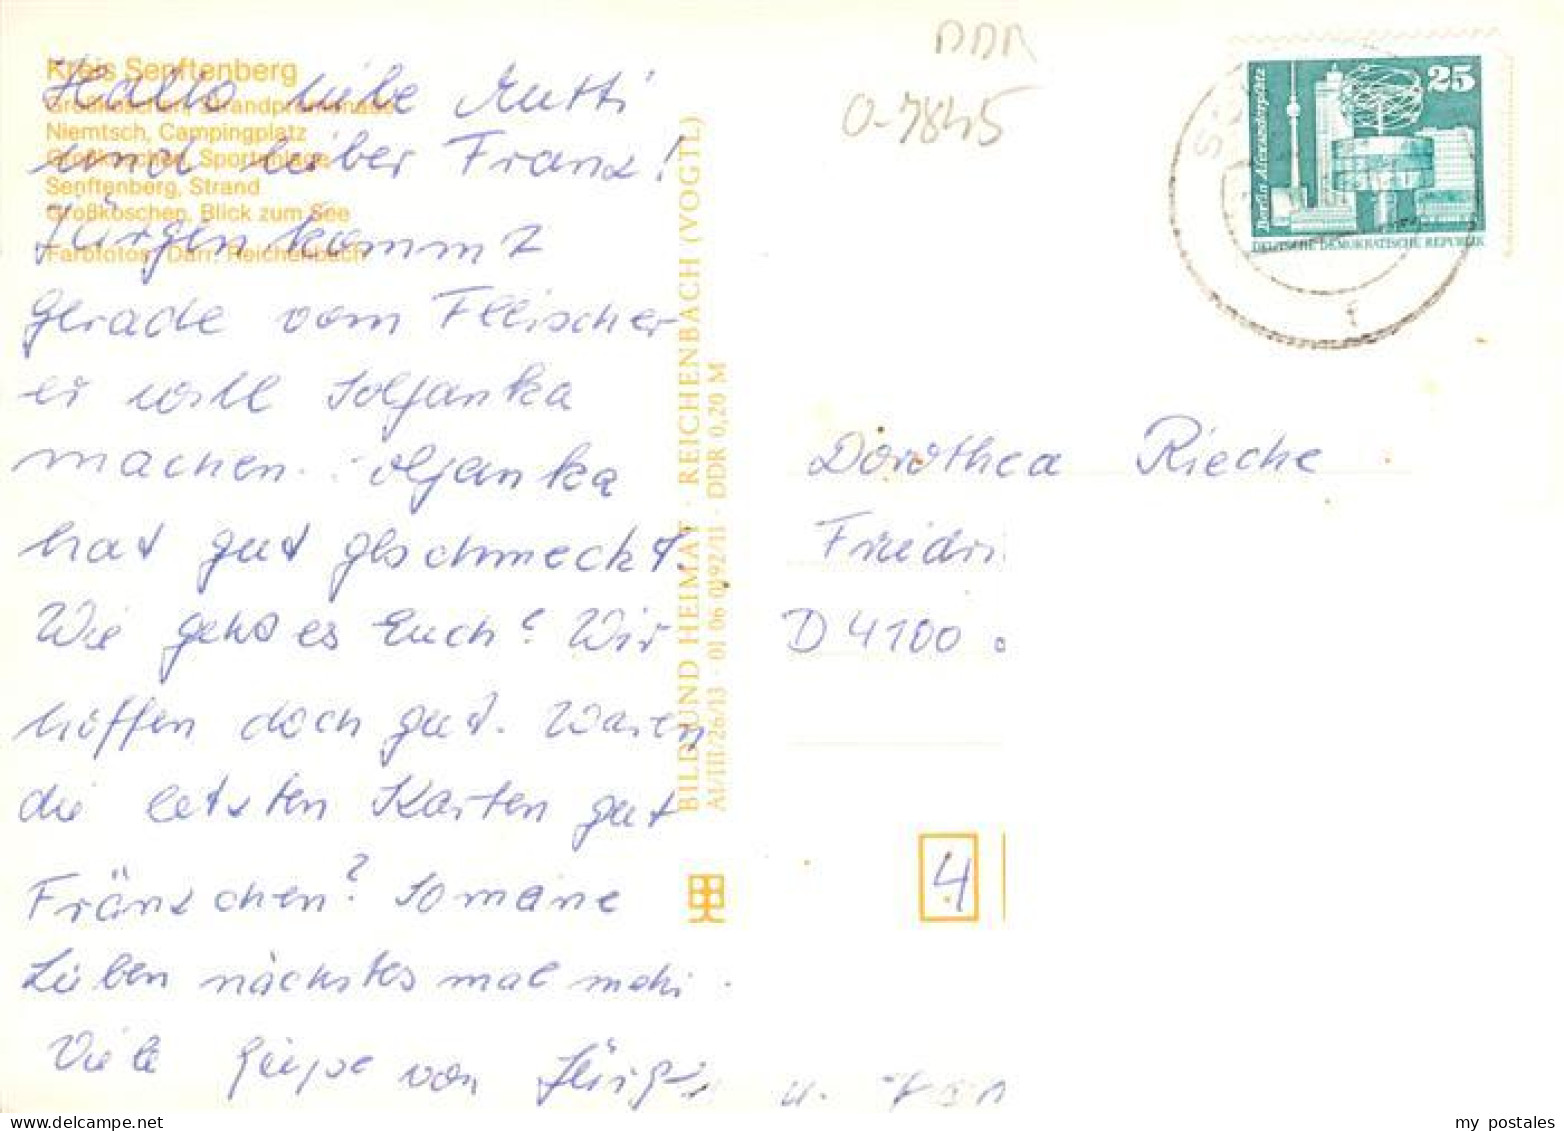 DDR
O-7845
Kreis Senftenberg
Großkoschen, Strandpromenade
Niemtsch, Campingplatz
Großkoschen, Sportanlage
Senftenberg, Strand
Großkoschen, Blick zum See
Farbfotos: Darr, Reichenbach
Hallo liebe Mutti
und lieber Franz!
Jürgen kommt
gerade vom Fleischer
er will Soljanka
machen. Soljanka
hat gut geschmeckt.
Wie gehts es Euch? Wir
hoffen doch gut. Waren
die letzten Karten gut
Fränzchen? So meine
Lieben nächstes mal mehr.
Viele Grüße von Jürgen u.
BILD UND HEIMAT · REICHENBACH (VOGTL)
A1/III/26/13 · 01 06 0192/11 · DDR 0,20 M
25
Berlin Alexanderplatz
DEUTSCHE DEMOKRATISCHE REPUBLIK
Dorothea Rieche
Friedri
D 4100
4
my postales